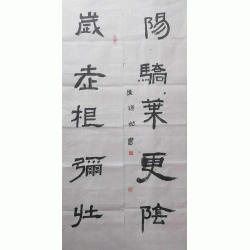 陽驕葉更陰
歲老根彌壯